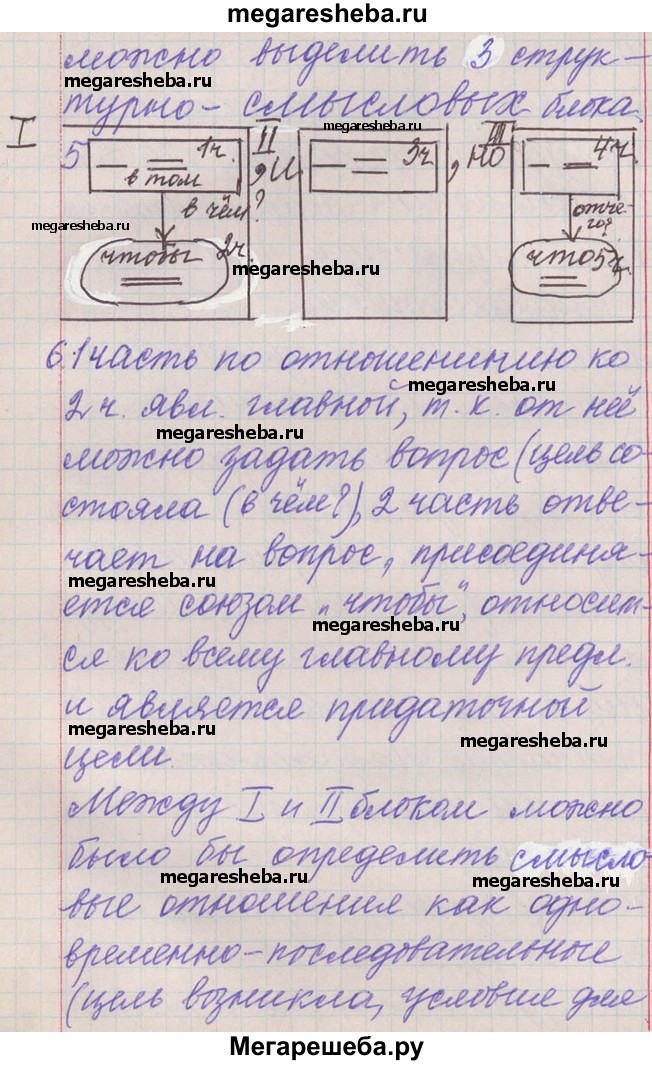 megaresheba.ru
можно выделить 3 струк-
megaresheba.ru
турно-смысловых блока.
I II III
5 1ч. , и 3ч , но 4ч.
в том
в чём? отчего?
megaresheba.ru
чтобы 2ч. что 5ч.
megaresheba.ru
6. 1 часть по отношенинию ко
megaresheba.ru
2 ч. явл. главной, т. к. от неё
megaresheba.ru
можно задать вопрос (цель со-
стояла (в чём?), 2 часть отве-
чает на вопрос, присоединя-
megaresheba.ru
ется союзом „чтобы", относит-
megaresheba.ru
ся ко всему главному предл.
и является придаточной
megaresheba.ru
megaresheba.ru
цели.
Между I и II блоком можно
было бы определить смысло
megaresheba.ru
megaresheba.ru
вые отношения как одно-
временно-последовательные
(цель возникла, условие для
Мегарешеба.ру